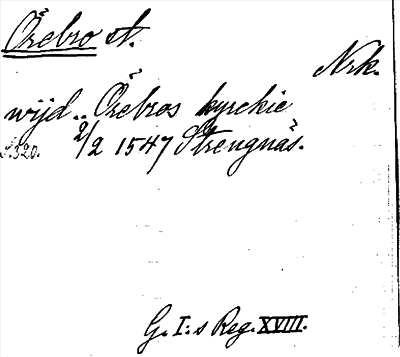 Örebro st.
Nrk.
wijd .. Örebros kyrckie
S. 320. 2/2 1547 Strengnäs.
G. I:s Reg. XVIII.